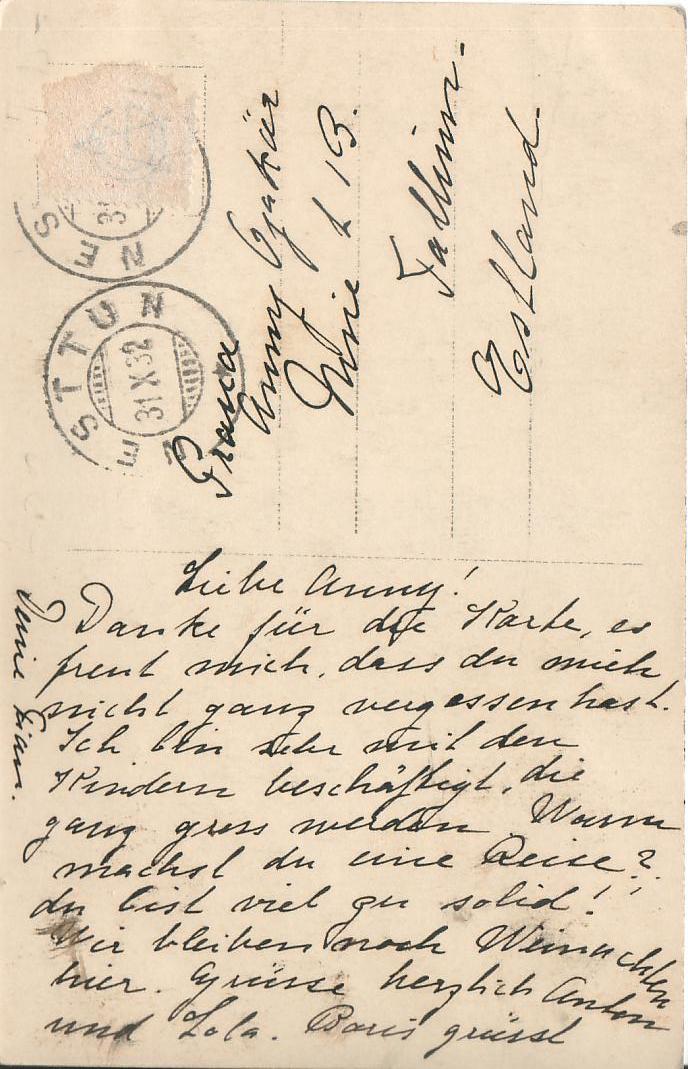 NES
NESTTUN
31 X 32
Frau
Anny
Nine 1 13.
Tallinn.
Estland.
Liebe Anny!
Danke für die Karte, es
freut mich, dass du mich
nicht ganz vergessen hast.
Ich bin sehr mit den
Kindern beschäftigt, die
ganz gross werden Wann
machst du eine Reise?
du bist viel zu solid!
Wir bleiben noch Weinachten
hier. Grüsse herzlich Anton
und Lola. Boris grüsst
Deine